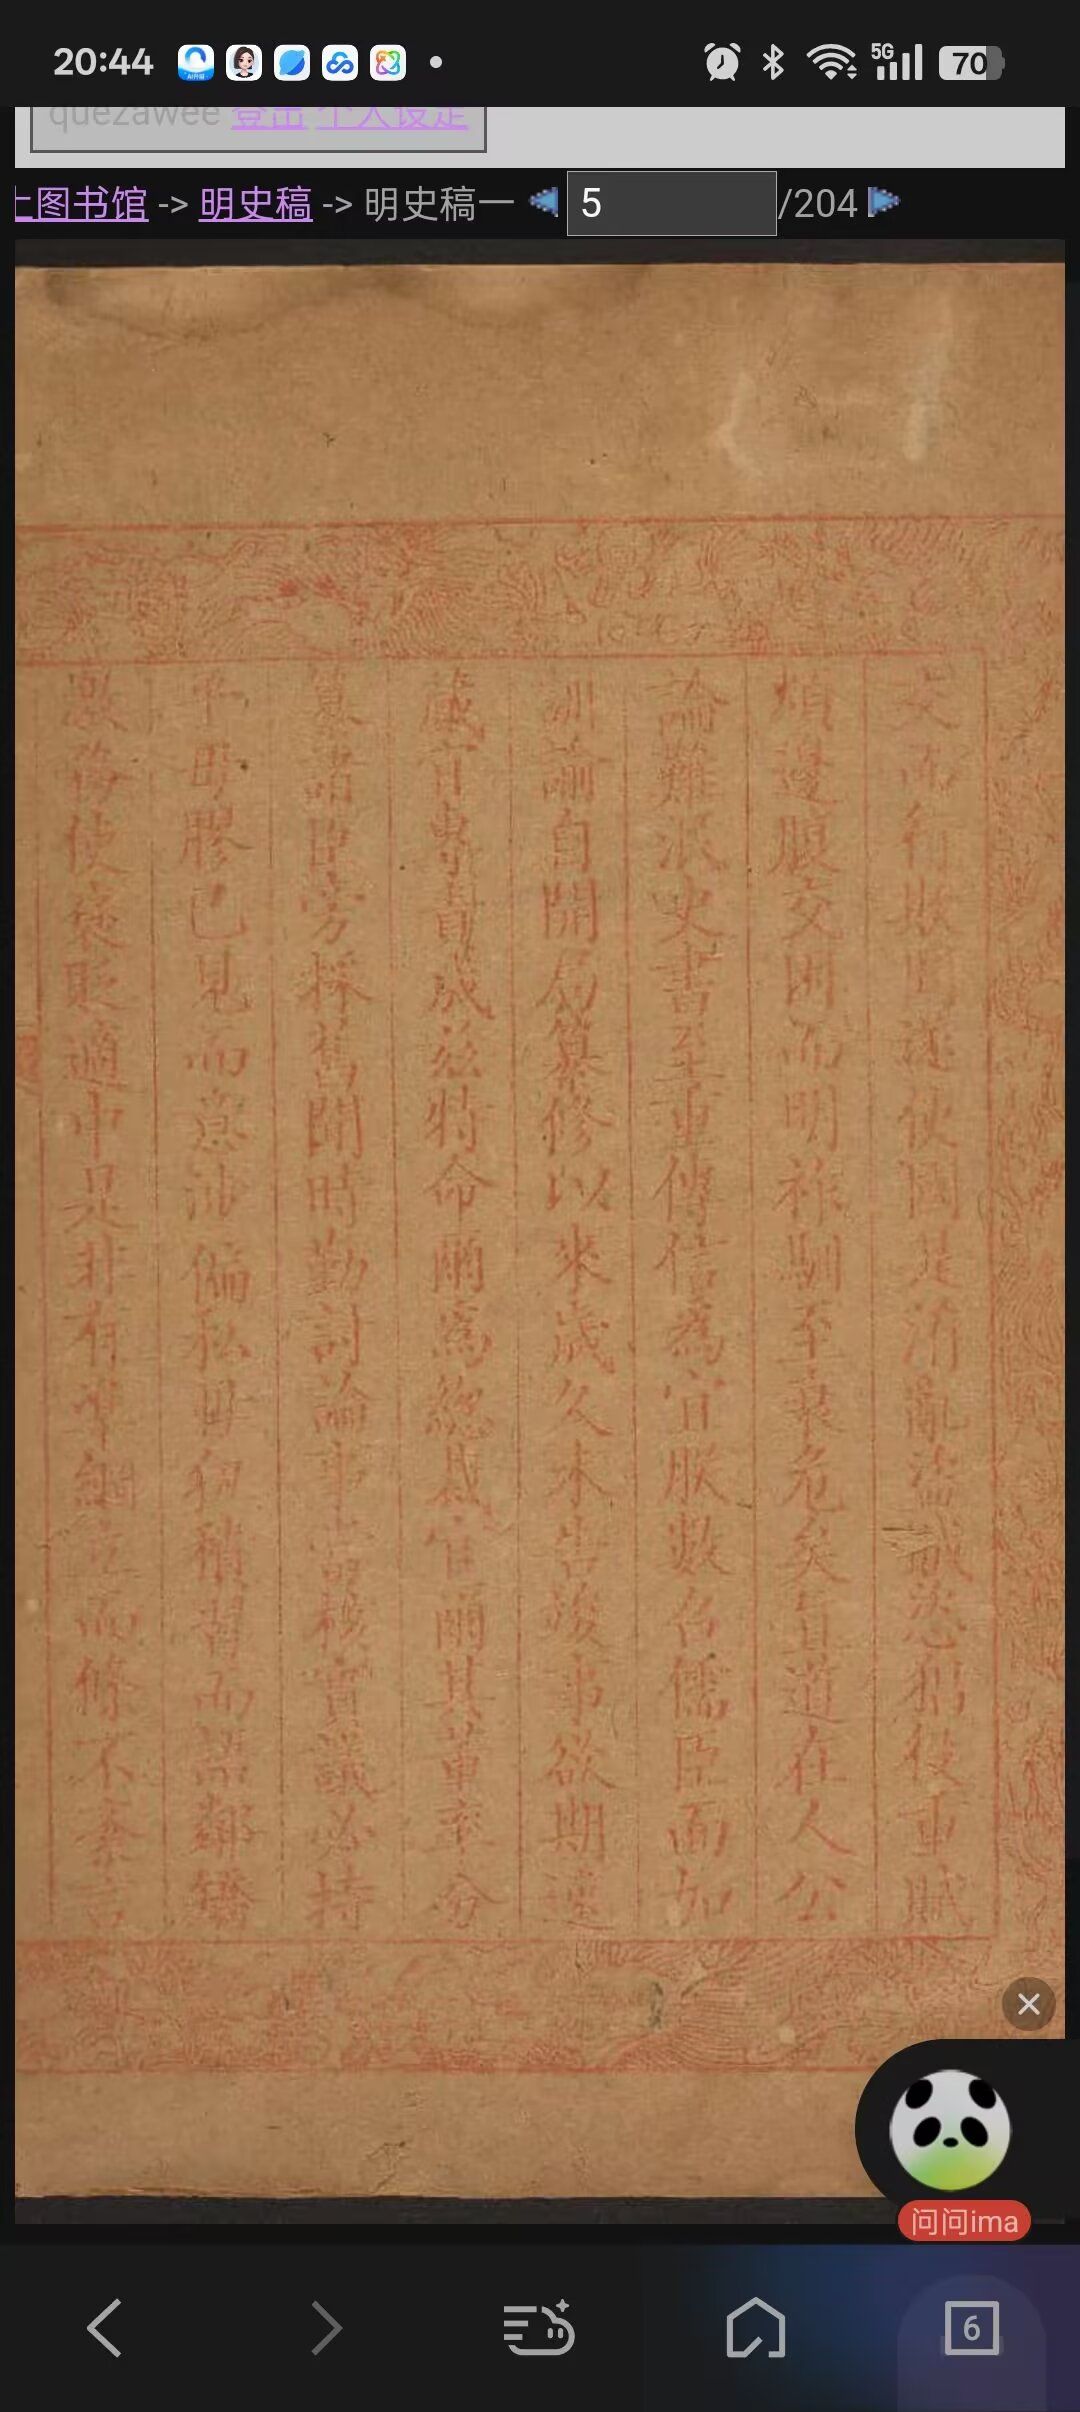 20:44
5G
70
quezawee 登出 个人设定
上图书馆 -> 明史稿 -> 明史稿一 5 /204
而行 使國是淆亂盜 恣 役重賦
煩邊腹交困而明祚馴至衰危矣且道在人公
論難泯史書至重傳信為宜朕數召儒臣面加
訓諭自開局纂修以來歲久未告竣事欲期速
成 專責成茲特命爾為總裁官爾其董率分
纂諸臣旁採舊聞時勤討論事 核實議必持
平毋膠已見而意涉偏私毋狃積習而 鄰矯
激務使褒貶適中是非有準網 而修不紊言
问问ima
6